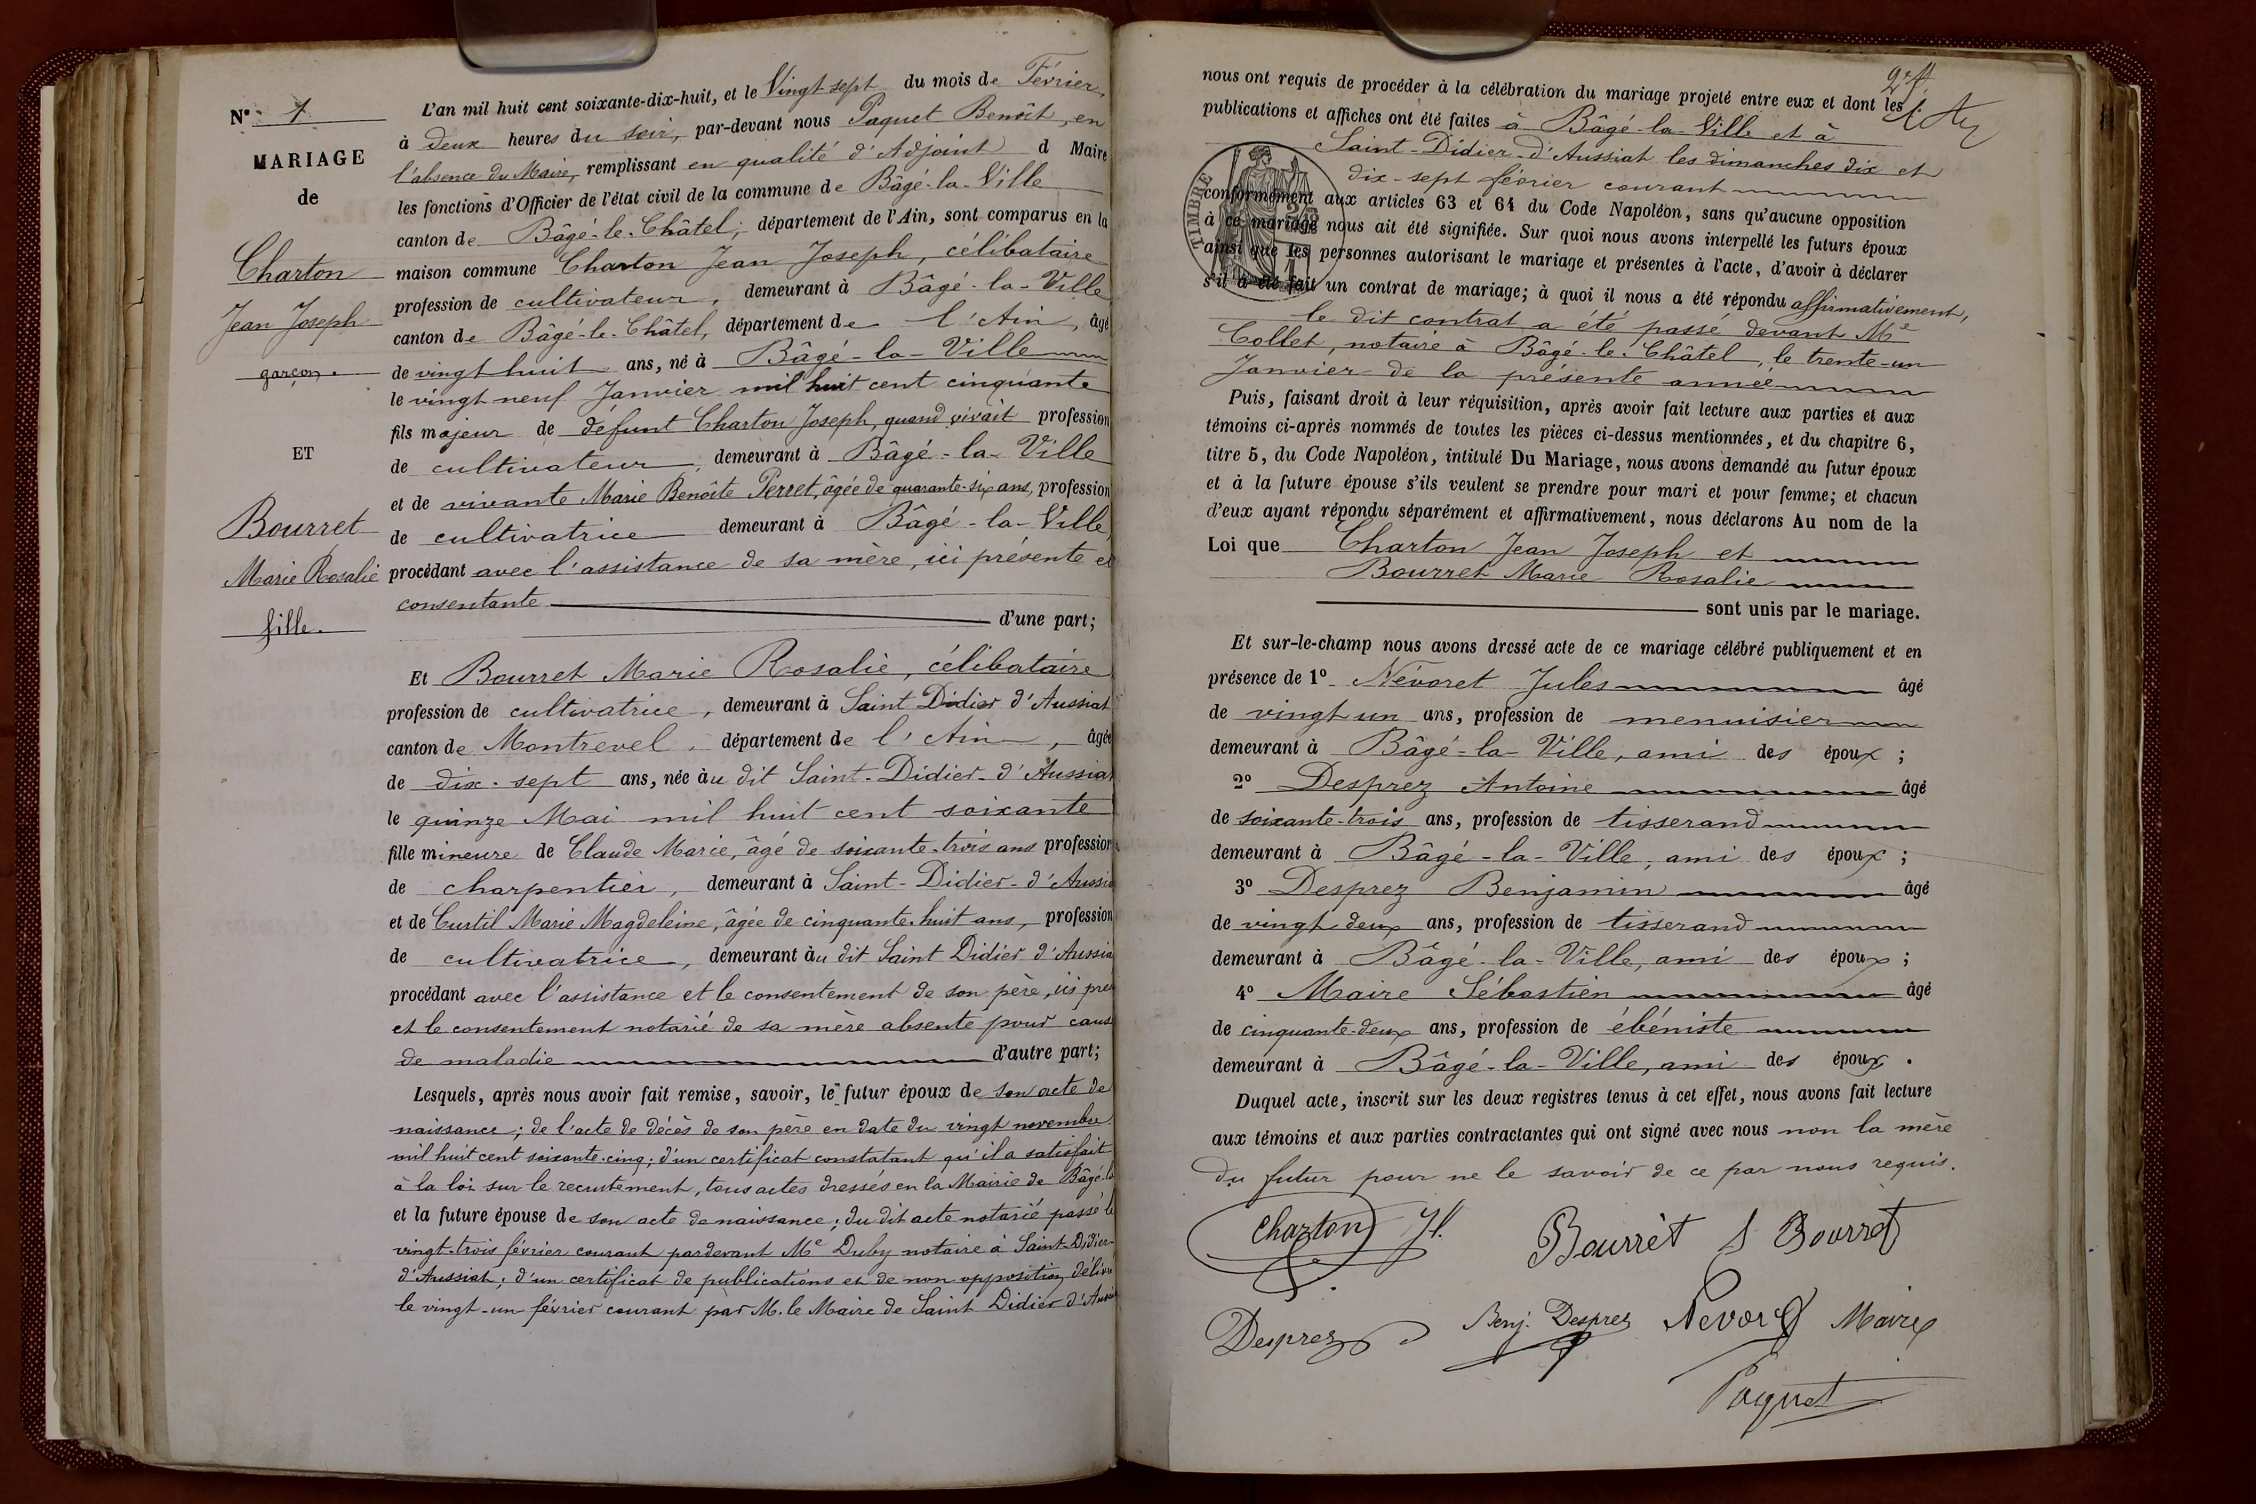 N° 7
MARIAGE
de
Charton
Jean Joseph
garçon.
ET
Bourret
Marie Rosalie
fille.
L'an mil huit cent soixante-dix-huit, et le Vingt sept du mois de Février,
à deux heures du soir, par-devant nous Paquet Benoît, en
l'absence du Maire, remplissant en qualité d'Adjoint d Maire
les fonctions d'Officier de l'état civil de la commune de Bâgé-la-Ville
canton de Bâgé-le-Châtel, département de l'Ain, sont comparus en la
maison commune Charton Jean Joseph, célibataire
profession de cultivateur, demeurant à Bâgé-la-Ville
canton de Bâgé-le-Châtel, département de l'Ain, âgé
de vingt huit ans, né à Bâgé-la-Ville
le vingt neuf Janvier mil huit cent cinquante
fils majeur de défunt Charton Joseph, quand vivait profession
de cultivateur, demeurant à Bâgé-la-Ville
et de vivante Marie Benoîte Perret, âgée de quarante-six ans, profession
de cultivatrice demeurant à Bâgé-la-Ville,
procédant avec l'assistance de sa mère, ici présente et
consentante d'une part;
Et Bourret Marie Rosalie, célibataire
profession de cultivatrice, demeurant à Saint Didier d'Aussiat
canton de Montrevel, département de l'Ain, âgée
de dix-sept ans, née àu dit Saint-Didier-d'Aussiat
le quinze Mai mil huit cent soixante
fille mineure de Claude Marie, âgé de soixante-trois ans profession
de charpentier, demeurant à Saint-Didier-d'Aussia
et de Curtil Marie Magdeleine, âgée de cinquante-huit ans, profession
de cultivatrice, demeurant àu dit Saint Didier d'Aussia
procédant avec l'assistance et le consentement de son père, ici pré
et le consentement notarié de sa mère absente pour caus
de maladie d'autre part;
Lesquels, après nous avoir fait remise, savoir, le futur époux de son acte de
naissance; de l'acte de décès de son père en date du vingt novembre
mil huit cent soixante-cinq; d'un certificat constatant qu'il a satisfait
à la loi sur le recrutement, tous actes dressés en la Mairie de Bâgé-la
et la future épouse de son acte de naissance; du dit acte notarié passé le
vingt-trois février courant pardevant Me Duby notaire à Saint-Didier-
d'Aussiat; d'un certificat de publications et de non opposition délivré
le vingt-un février courant par M. le Maire de Saint Didier d'Aussi
nous ont requis de procéder à la célébration du mariage projeté entre eux et dont les
publications et affiches ont été faites à Bâgé-la-Ville et à
Saint-Didier-d'Aussiat les dimanches dix et
dix-sept février courant
TIMBRE
conformément aux articles 63 et 64 du Code Napoléon, sans qu'aucune opposition
à ce mariage nous ait été signifiée. Sur quoi nous avons interpellé les futurs époux
ainsi que les personnes autorisant le mariage et présentes à l'acte, d'avoir à déclarer
s'il a été fait un contrat de mariage; à quoi il nous a été répondu affirmativement,
le dit contrat a été passé devant Me
Collet, notaire à Bâgé-le-Châtel, le trente-un
Janvier de la présente année
Puis, faisant droit à leur réquisition, après avoir fait lecture aux parties et aux
témoins ci-après nommés de toutes les pièces ci-dessus mentionnées, et du chapitre 6,
titre 5, du Code Napoléon, intitulé Du Mariage, nous avons demandé au futur époux
et à la future épouse s'ils veulent se prendre pour mari et pour femme; et chacun
d'eux ayant répondu séparément et affirmativement, nous déclarons Au nom de la
Loi que Charton Jean Joseph et
Bourret Marie Rosalie
sont unis par le mariage.
Et sur-le-champ nous avons dressé acte de ce mariage célébré publiquement et en
présence de 1° Névoret Jules âgé
de vingt un ans, profession de menuisier
demeurant à Bâgé-la-Ville, ami des époux;
2° Desprez Antoine âgé
de soixante-trois ans, profession de tisserand
demeurant à Bâgé-la-Ville, ami des époux;
3° Desprez Benjamin âgé
de vingt deux ans, profession de tisserand
demeurant à Bâgé-la-Ville, ami des époux;
4° Maire Sébastien âgé
de cinquante-deux ans, profession de ébéniste
demeurant à Bâgé-la-Ville, ami des époux.
Duquel acte, inscrit sur les deux registres tenus à cet effet, nous avons fait lecture
aux témoins et aux parties contractantes qui ont signé avec nous non la mère
du futur pour ne le savoir de ce par nous requis.
Charton Jh. Bourrèt Bourret
Desprez Benj. Desprez Nevoret Maire
Paquet